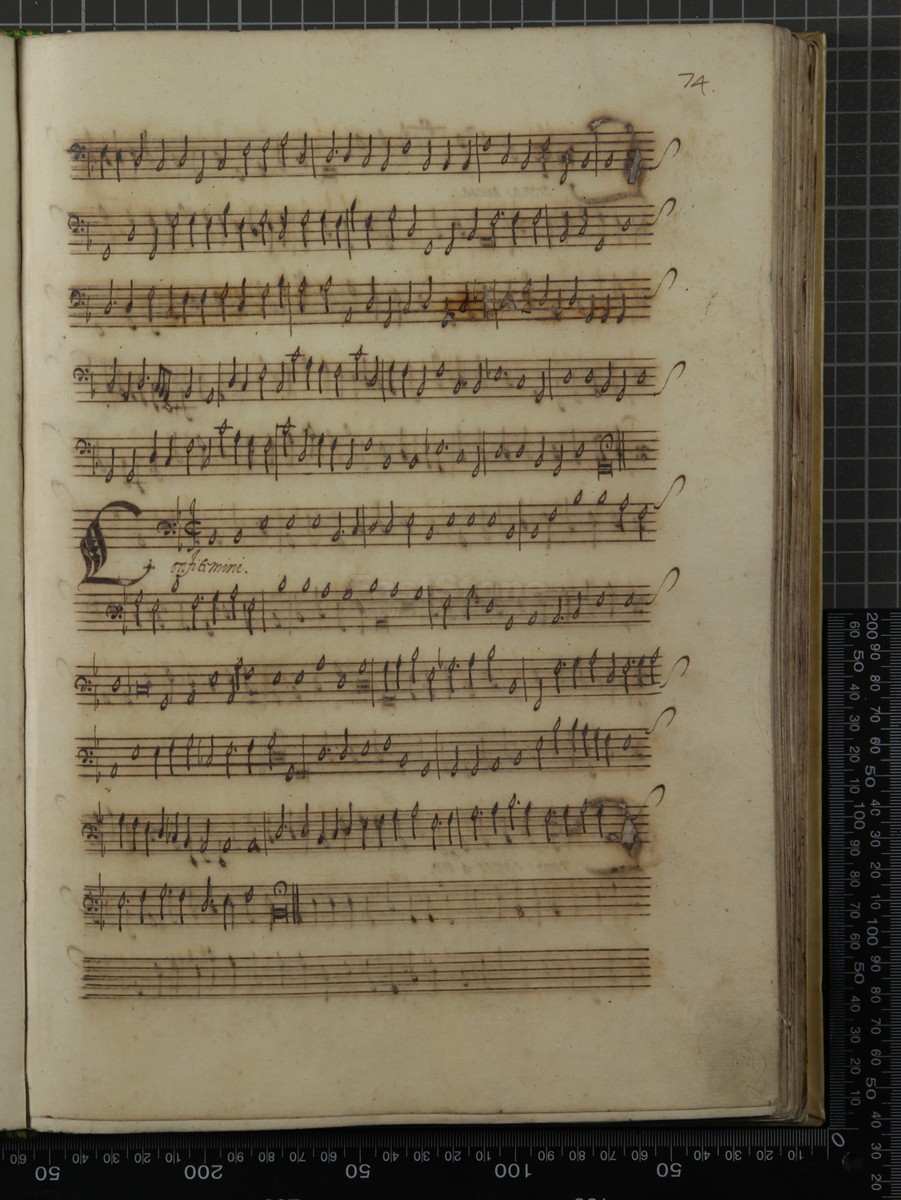 74.
Confitemini.